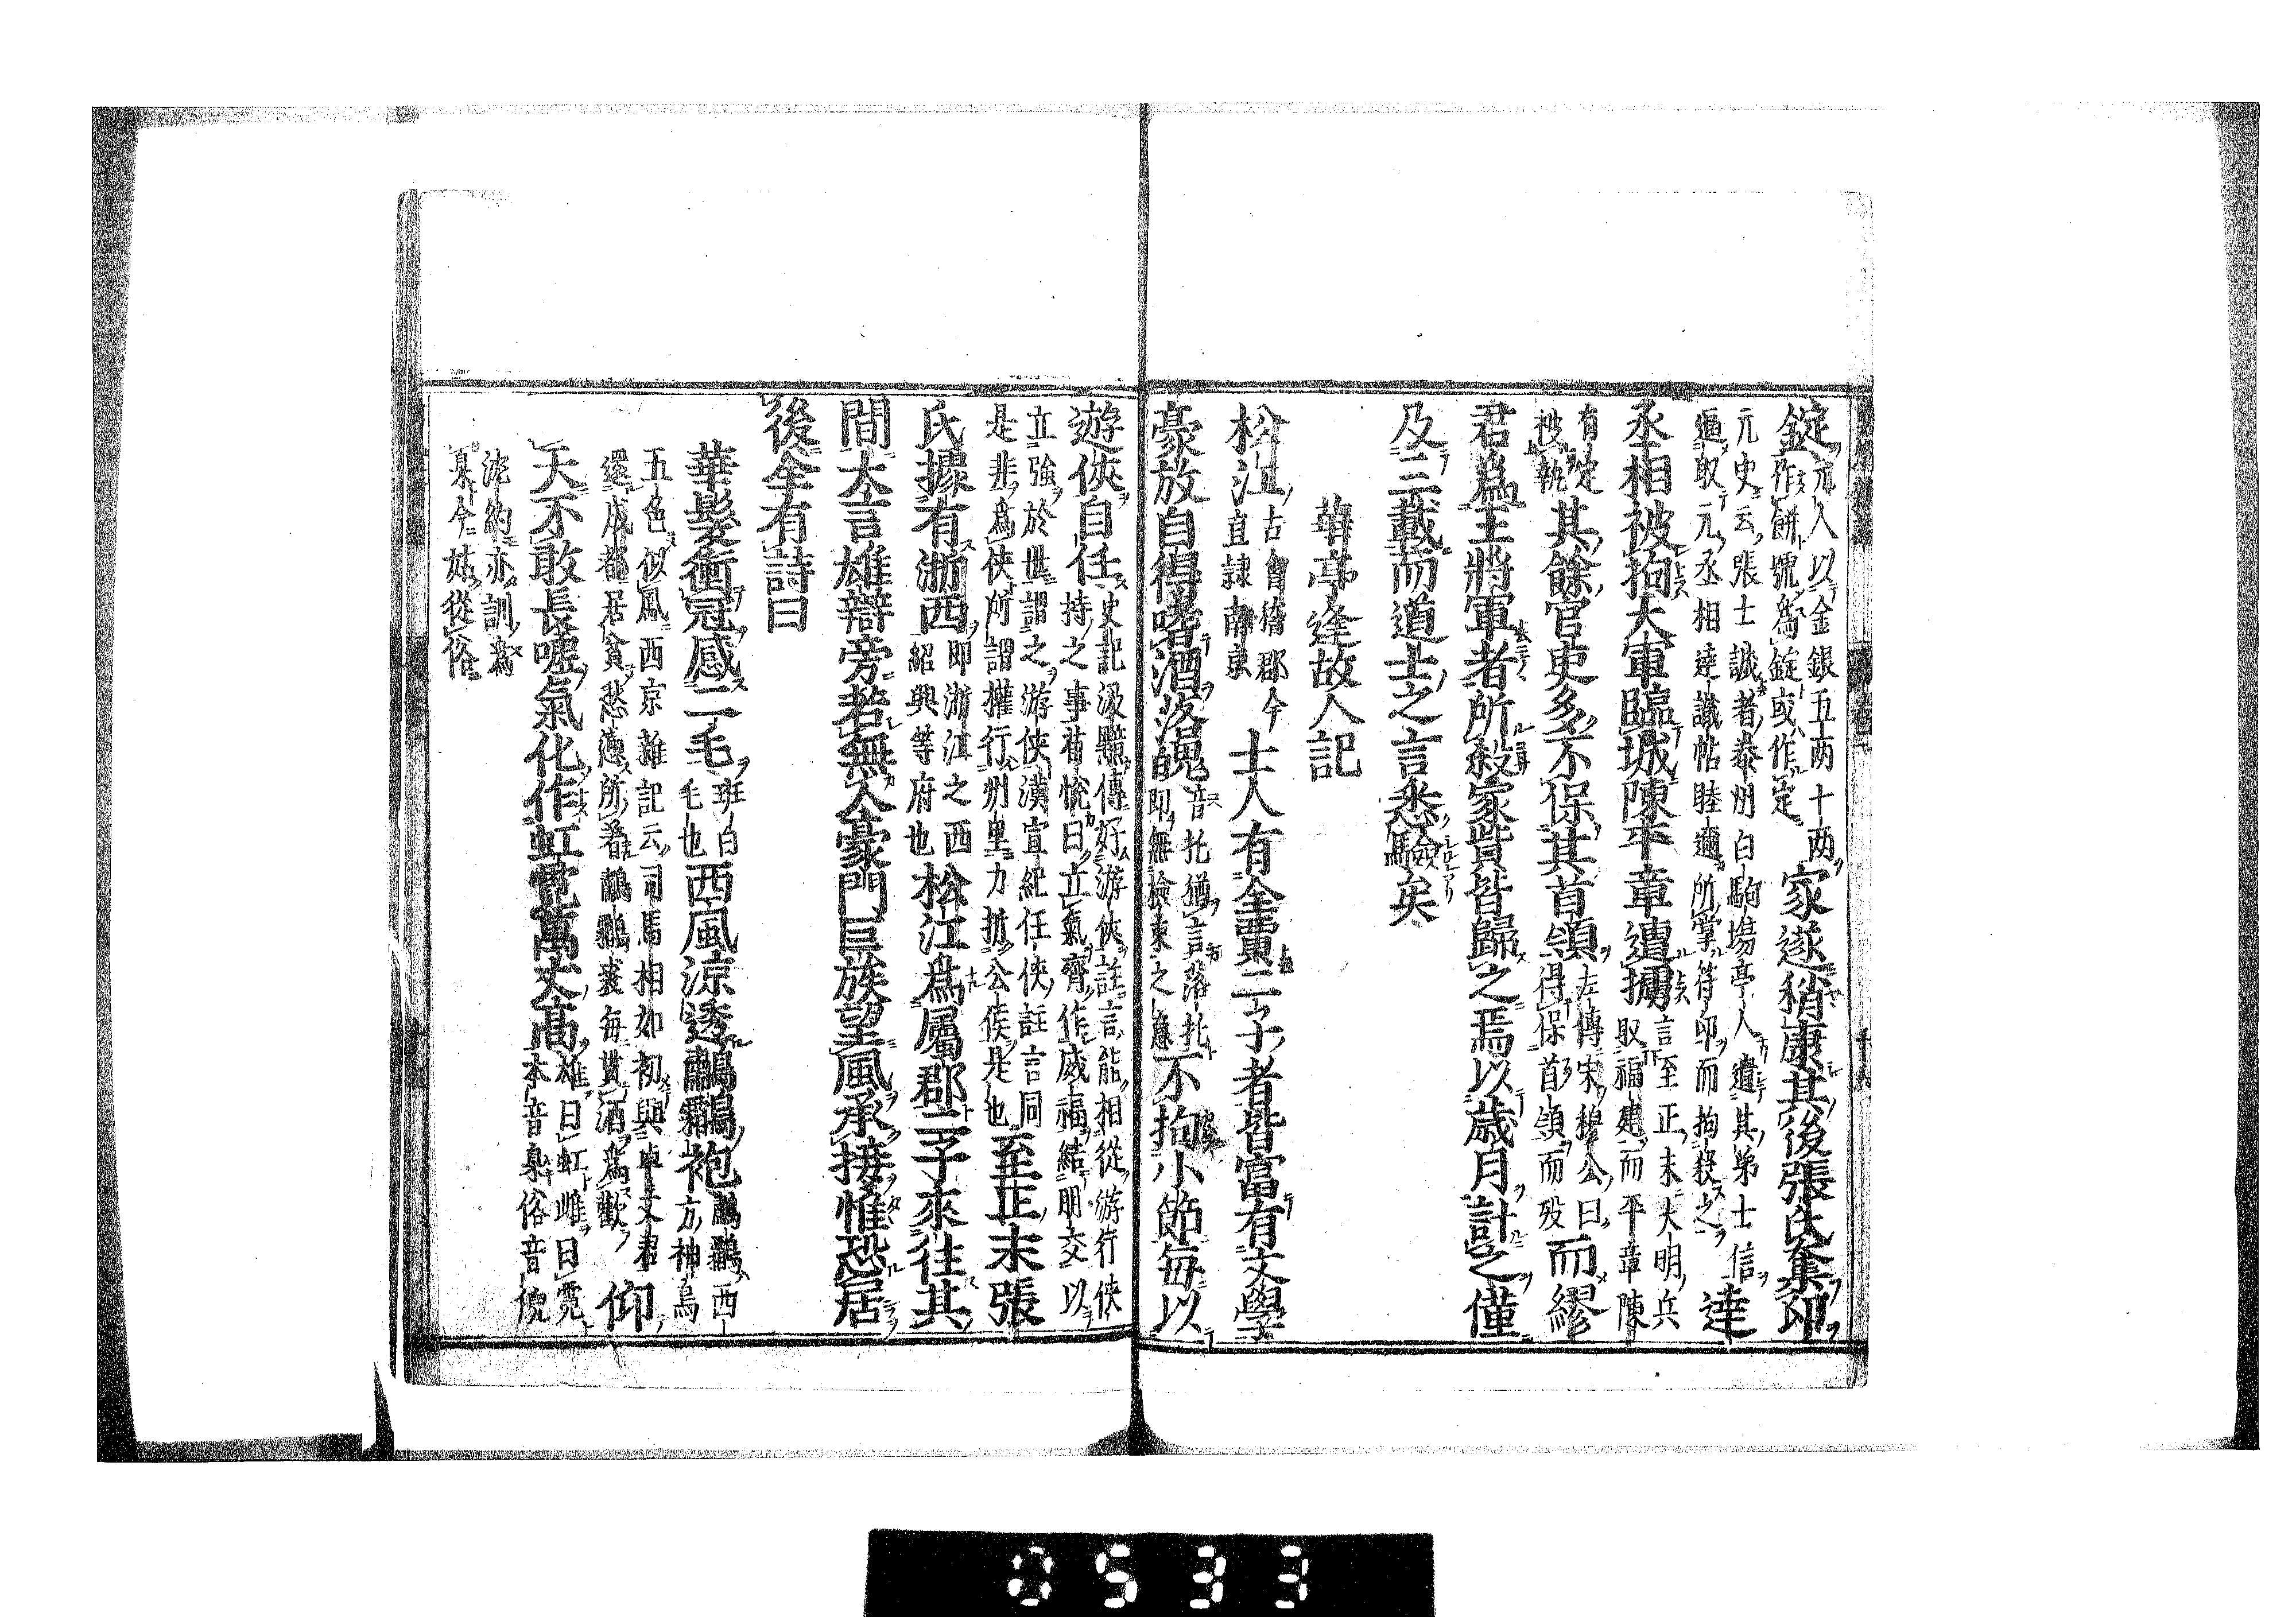 錠元人以金銀五両十両
作餅號爲錠或作定家遂稍康其後張氏奪印
元史云張士誠者泰州白駒場亭人遣其弟士信
逼取元丞相達識帖睦邇所掌符印而拘殺之達
丞相被拘大軍臨城陳平章遭擄言至正末大明兵
取福建而平章陳
有定
被執其餘官吏多不保其首領左傳宋穆公曰
得保首領而歿而繆
君爲王將軍者所殺家貲皆歸之焉以歳月計之僅
及三載而道士之言悉驗矣
華亭逢故人記
松江古會稽郡今
直隷南京士人有全賈二子者皆富有文學
豪放自得嗜酒落魄音托猶言落托
即無檢束之意不拘小節毎以
遊俠自任史記汲黯傳好游俠註言能相從游行俠
持之事荀悅曰立氣齊作威福結朋交以
立強於世謂之游俠漢宣紀任俠註言同
是非爲俠所謂權行州里力抗公侯是也至正末張
氏據有浙西即浙江之西
紹興等府也松江爲屬郡二子來往其
間大言雄辯旁若無人豪門巨族望風承接惟恐居
後全有詩曰
華髪衝冠感二毛班白
毛也西風涼透鷫鸘袍鷫鸘西
方神鳥
五色似鳳西京雜記云司馬相如初與卓文君
還成都居貧愁懣所著鷫鸘裘毎貰酒爲歡仰
天不敢長噓氣化作虹霓萬丈高雄曰虹雌曰霓
本音臬俗音倪
沈約亦訓爲
臬今姑從俗
0533